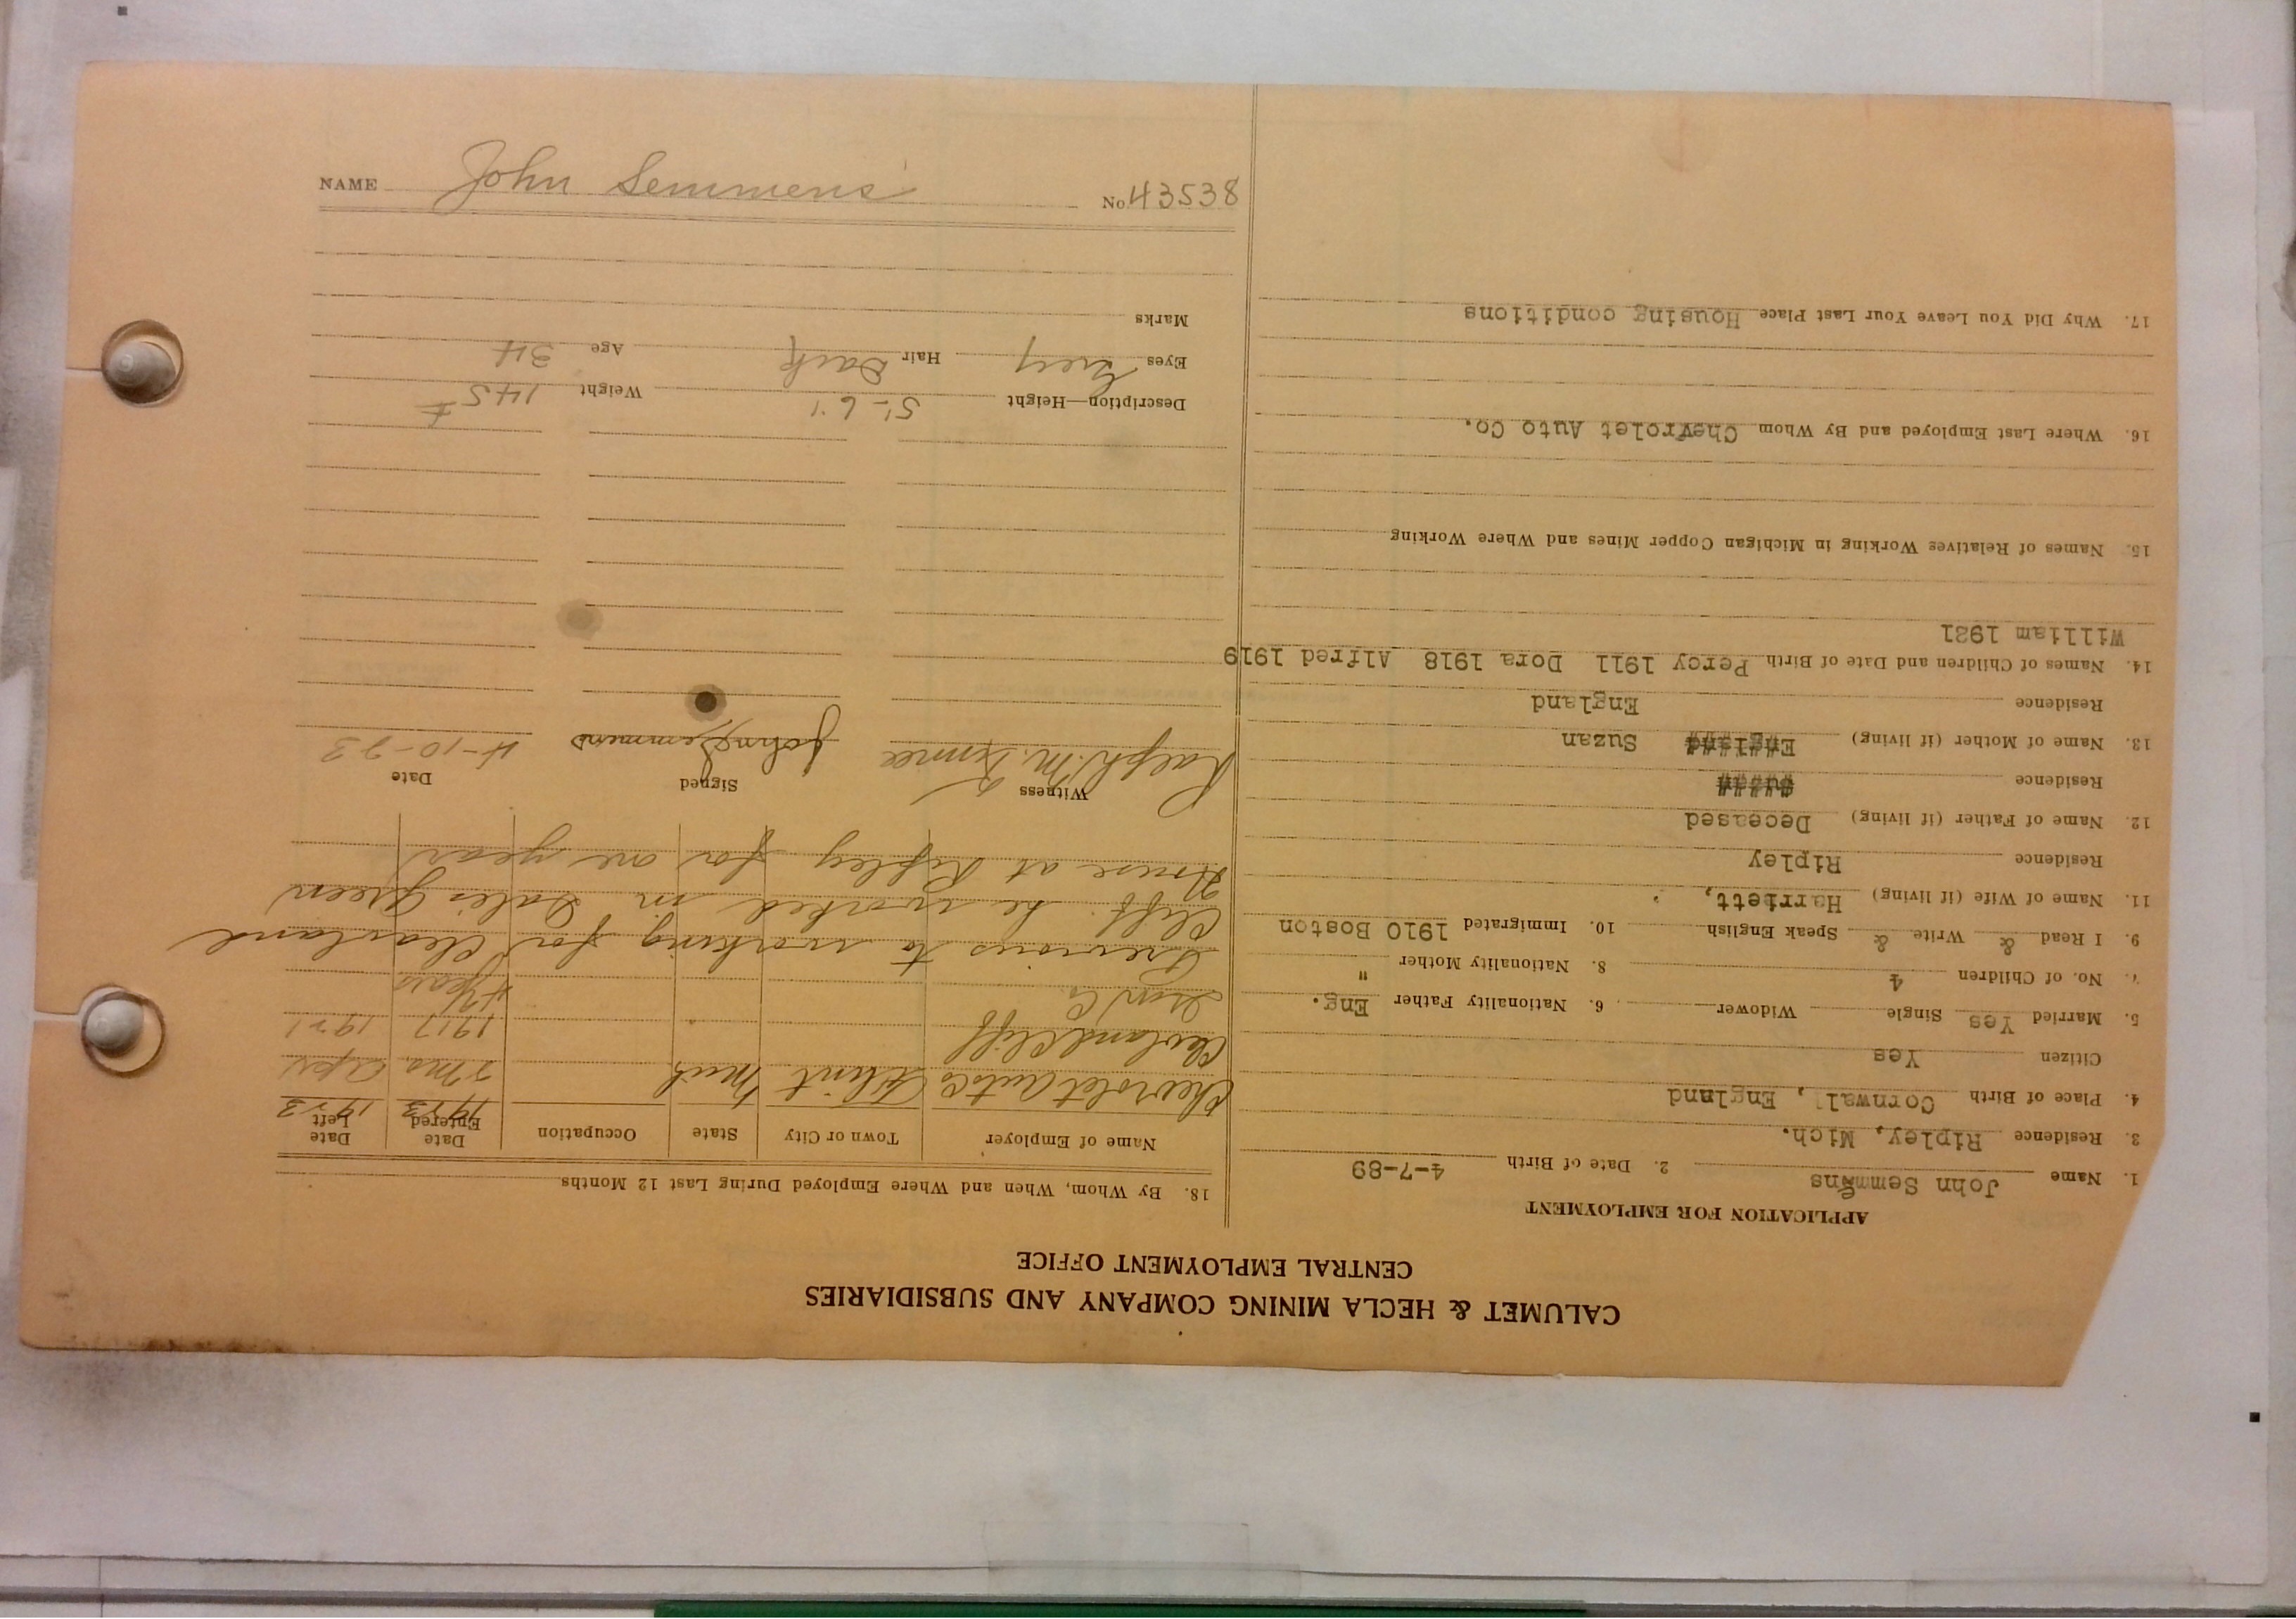 CALUMET & HECLA MINING COMPANY AND SUBSIDIARIES
CENTRAL EMPLOYMENT OFFICE
APPLICATION FOR EMPLOYMENT
1. Name John Semmens 2. Date of Birth 4-7-89
3. Residence Ripley, Mich.
4. Place of Birth Cornwal, England
Citizen Yes
5. Married Yes Single Widower 6. Nationality Father Eng.
7. No. of Children 4 8. Nationality Mother "
9. I Read & Write & Speak English 10. Immigrated 1910 Boston
11. Name of Wife (if living) Harriett,
Residence Ripley
12. Name of Father (if living) Deceased
Residence
13. Name of Mother (if living) Suzan
Residence England
14. Names of Children and Date of Birth Percy 1911 Dora 1918 Alfred 1919
William 1921
15. Names of Relatives Working in Michigan Copper Mines and Where Working
16. Where Last Employed and By Whom Chevrolet Auto Co.
17. Why Did You Leave Your Last Place Housing conditions
18. By Whom, When and Where Employed During Last 12 Months
Name of Employer Town or City State Occupation Date Entered Date Left
1923 1923
Chevrolet Auto Co Flint Mich 2 Mo. Apr
Clevland Cliff 1917 1921
Iron Co. 4 1/2 years
Previous to working for Clevland
Cliff he worked in Dales Green
House at Ripley for one year
Witness Signed Date
Ralph M. John Semmens 4-10-23
Description—Height 5'-6" Weight 145 #
Eyes Grey Hair Dark Age 34
Marks
NAME John Semmens No. 43538